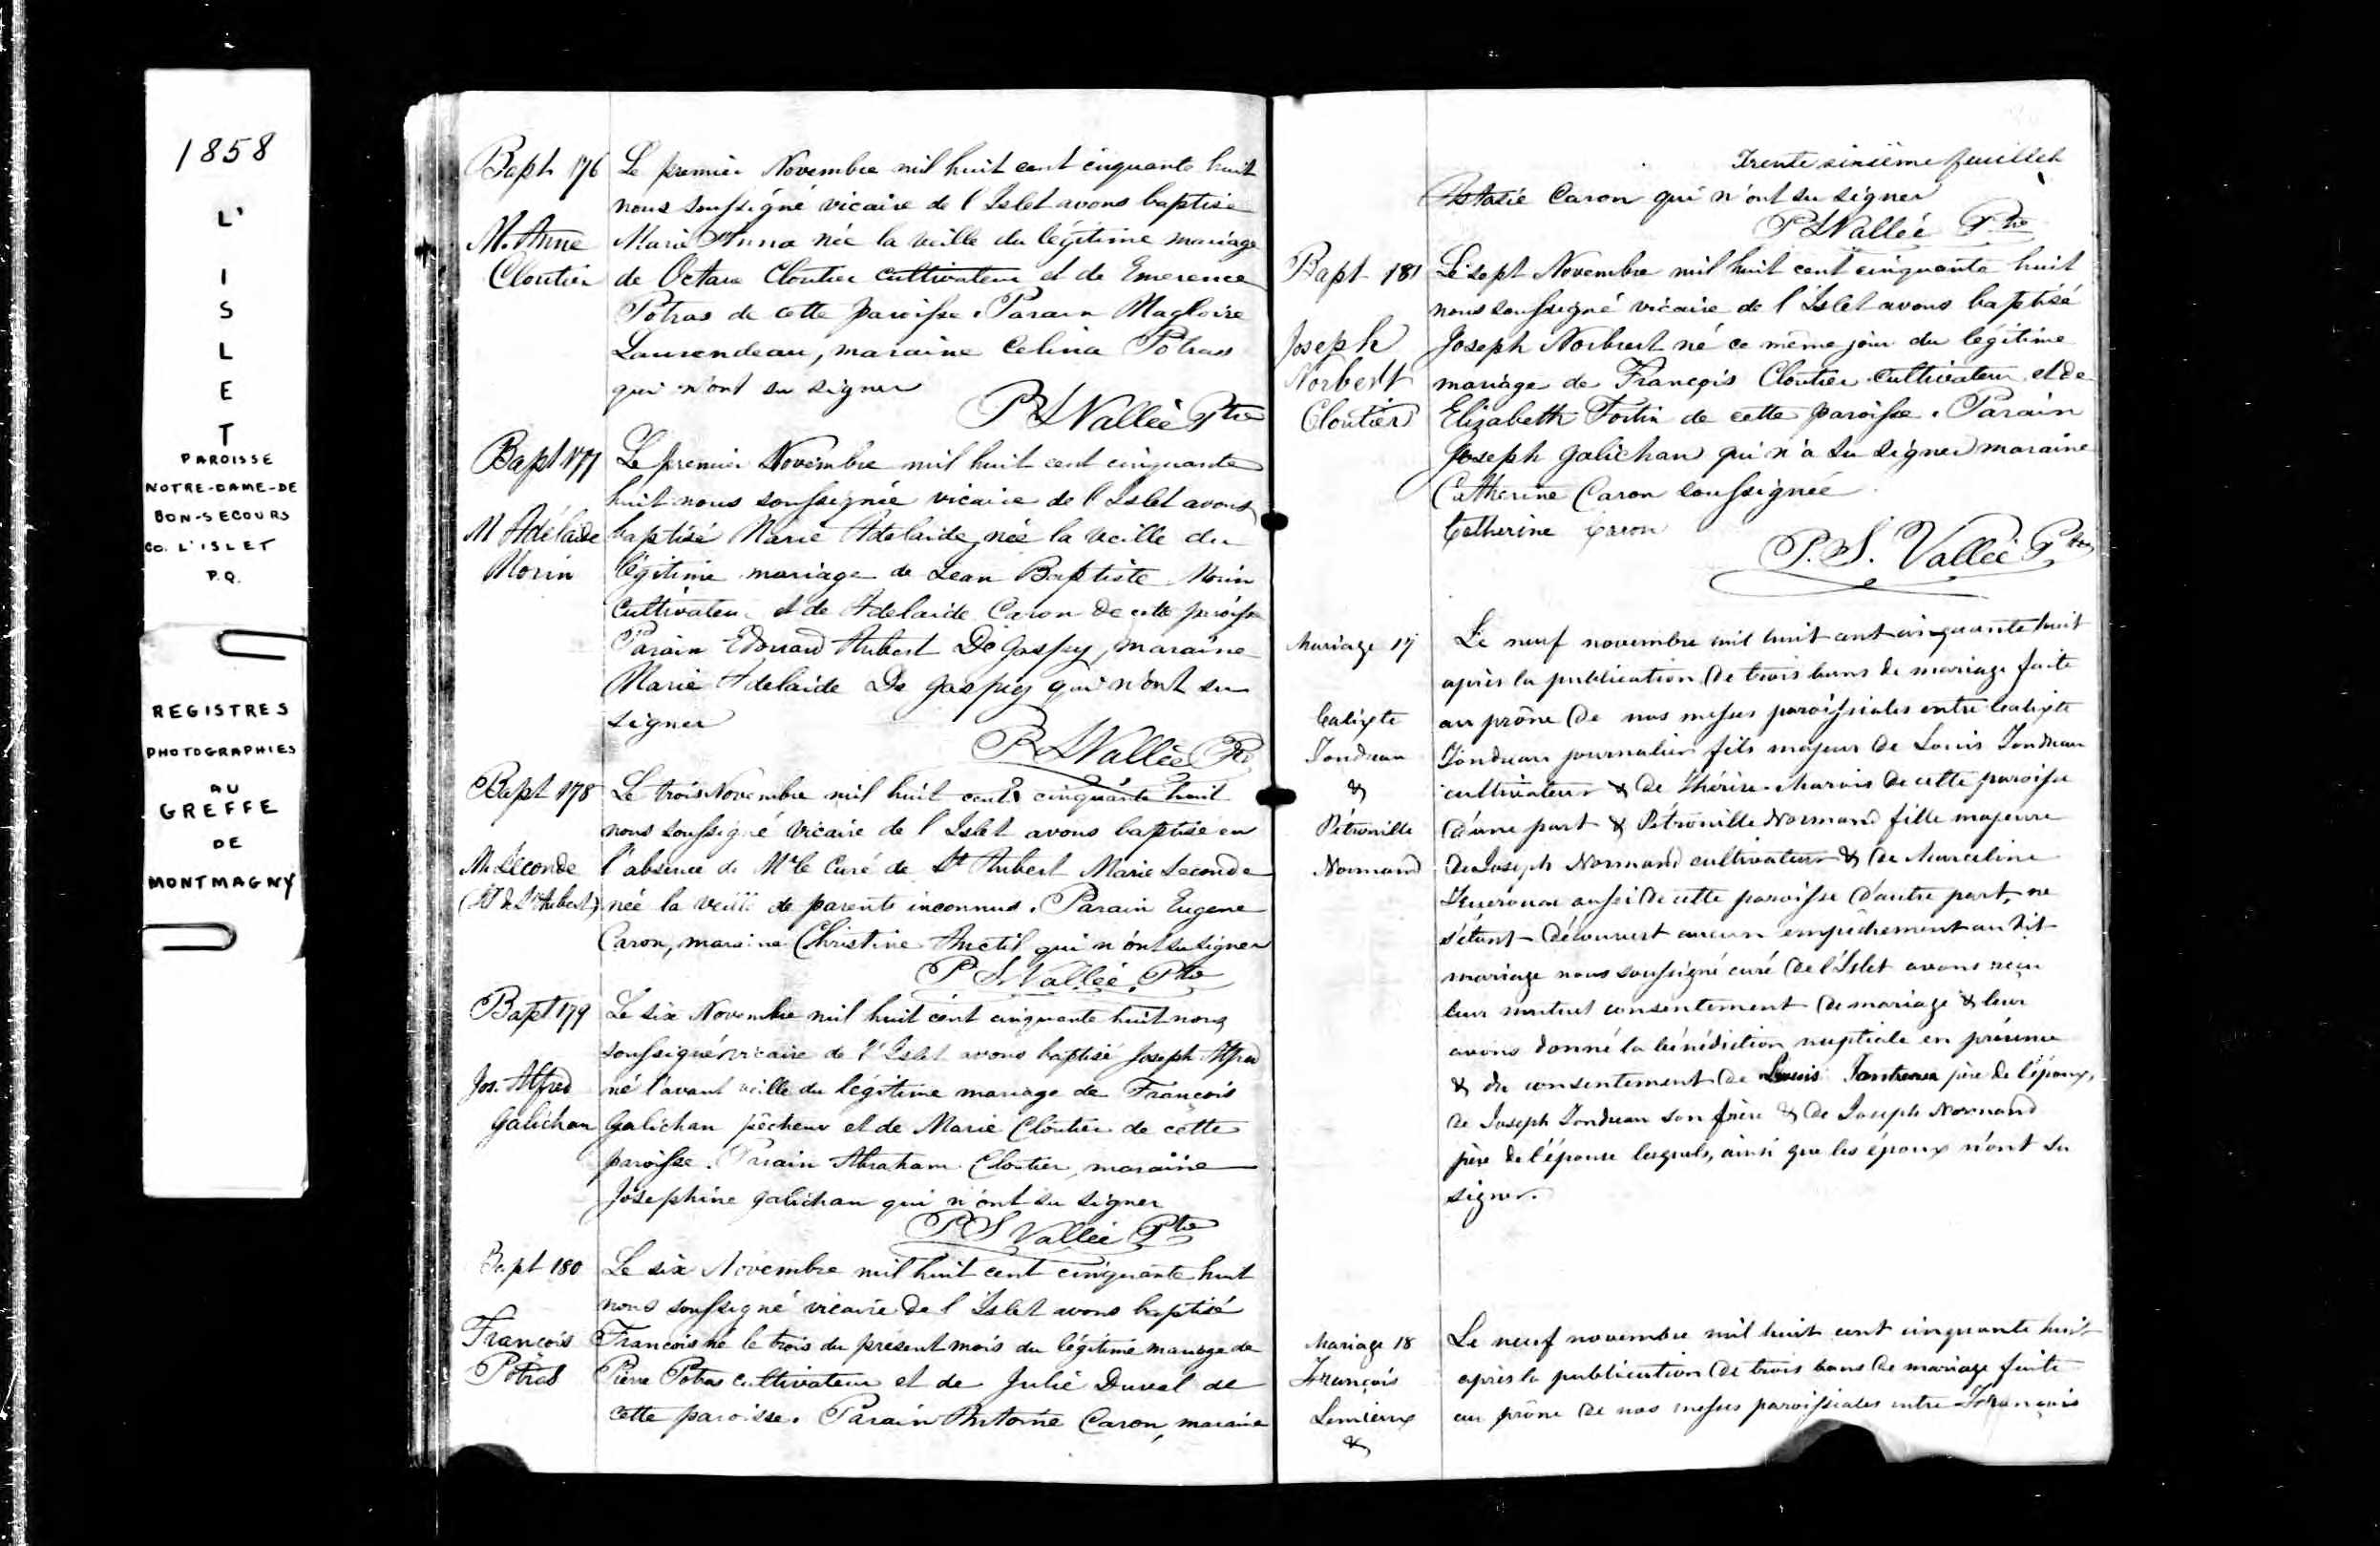 1858
L'
I
S
L
E
T
PAROISSE
NOTRE-DAME-DE
BON-SECOURS
CO. L'ISLET
P.Q.
REGISTRES
PHOTOGRAPHIES
AU
GREFFE
DE
MONTMAGNY
Bapt 176
M. Anne
Cloutier
Le premier Novembre mil huit cent cinquante huit
nous soussigné vicaire de l'Islet avons baptisé
Marie Anna née la veille du légitime mariage
de Octave Cloutier cultivateur et de Emerence
Potras de cette paroisse. Parain Magloire
Laurendeau, maraine Celina Potras
qui n'ont su signer
P S Vallée Ptre
Bapt 177
M Adélaide
Morin
Le premier Novembre mil huit cent cinquante
huit nous soussignée vicaire de l'Islet avons
baptisé Marie Adelaide, née la veille du
légitime mariage de Jean Baptiste Morin
cultivateur et de Adelaide Caron de cette paroisse
Parain Edouard Aubert De Gaspey, maraine
Marie Adelaide De Gaspey qui n'ont su
signer
P S Vallée Ptre
Bapt 178
M. Seconde
(St Aubert)
Le trois Novembre mil huit cent cinquante huit
nous soussigné vicaire de l'Islet avons baptisé en
l'absence de Mr le Curé de St Aubert Marie Seconde
née la veille de parents inconnus. Parain Eugene
Caron, maraine Christine Anctil qui n'ont su signer
P S Vallée, Ptre
Bapt 179
Jos. Alfred
Galichan
Le six Novembre mil huit cent cinquante huit nous
soussigné vicaire de l'Islet avons baptisé Joseph Alfred
né l'avant veille du légitime mariage de François
Galichan pêcheur et de Marie Cloutier de cette
paroisse. Parain Abraham Cloutier, maraine
Josephine Galichan qui n'ont su signer
P S Vallée Ptre
Bapt 180
François
Potras
Le six Novembre mil huit cent cinquante huit
nous soussigné vicaire de l'Islet avons baptisé
François né le trois du présent mois du légitime mariage de
Pierre Potras cultivateur et de Julie Duval de
cette paroisse. Parain Antoine Caron, maraine
Trente sixième feuillet
Astasie Caron qui n'ont su signer
P S Vallée Ptre
Bapt 181
Joseph
Norbert
Cloutier
Le sept Novembre mil huit cent cinquante huit
nous soussigné vicaire de l'Islet avons baptisé
Joseph Norbert né ce même jour du légitime
mariage de François Cloutier cultivateur et de
Elizabeth Fortin de cette paroisse. Parain
Joseph Galichan qui n'a su signer maraine
Catherine Caron soussignée
Catherine Caron
P. S. Vallée Ptre
Mariage 17
Calixte
Tondreau
&
Pétronille
Normand
Le neuf novembre mil huit cent cinquante huit
après la publication de trois bans de mariage faite
au prône de nos messes paroissiales entre Calixte
Tondreau journalier fils majeur de Louis Tondreau
cultivateur & de Thérèse Marois de cette paroisse
d'une part & Pétronille Normand fille majeure
de Joseph Normand cultivateur & de Marceline
aussi de cette paroisse d'autre part, ne
s'étant découvert aucun empêchement au dit
mariage nous soussigné curé de l'Islet avons reçu
leur mutuel consentement de mariage & leur
avons donné la bénédiction nuptiale en présence
& du consentement de Louis Tondreau père de l'époux,
de Joseph Tondreau son frère & de Joseph Normand
père de l'épouse lesquels, ainsi que les époux n'ont su
signer.
Mariage 18
François
Lemieux
&
Le neuf novembre mil huit cent cinquante huit
après la publication de trois bans de mariage faite
au prône de nos messes paroissiales entre François